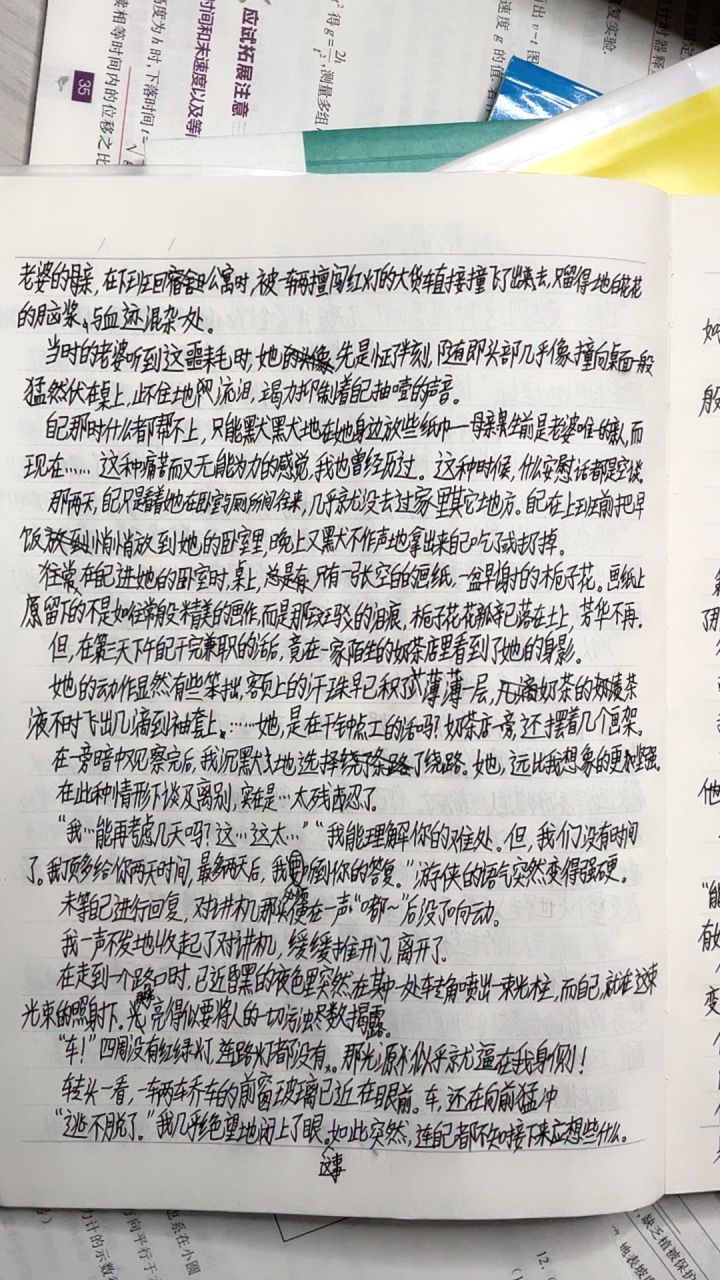 35
应试拓展注意
时间和末速度以及等
高度为h时,下落时间t=
续相等时间内的位移之比
得g=2h/t²,测量多组
画出v-t图
速度g的值.
复实验.
计时器
老婆的母亲,在下班回宿舍公寓时,被一辆擅闯红灯的大货车直接撞飞了出去,只留得土地白花花
的脑浆,与血迹混杂一处。
当时的老婆听到这噩耗时,她先是怔了半刻,随即头部几乎像撞向桌面一般
猛然伏在桌上,止不住地流泪,竭力抑制着自己抽噎的声音。
自己那时什么都帮不上,只能默默地在她身边放些纸巾—母亲生前是老婆唯一的亲人,而
现在……这种痛苦而又无能为力的感觉,我也曾经历过。这种时候,什么安慰话都是空谈。
那两天,自己只是看着她在卧室与厕所间往来,几乎就没去过家里其它地方。自己在上班前把早
饭悄悄放到她的卧室里,晚上又默不作声地拿出来自己吃了或扔掉。
往常在自己进她的卧室时,桌上,总是只有一张空白的画纸,一盆早谢的栀子花。画纸上
原留下的不是如往常般精美的画作,而是那斑驳的泪痕,栀子花花瓣已落在土上,芳华不再.
但,在第三天下午自己干完兼职的活后,竟在一家陌生的奶茶店里看到了她的身影。
她的动作显然有些笨拙,额頁上的汗珠早已积了薄薄一层,奶茶的茶
液不时飞出几滴到袖套上.……她,是在干钟点工的活吗?奶茶店一旁,还摆着几个画架。
在一旁暗中观察完后,我沉默地选择了绕路。她,远比我想象的更加坚强.
在此种情形下谈及离别,实在是…太残忍了。
“我…能再考虑几天吗?这…这太…”“我能理解你的难处。但,我们没有时间
了。我顶多给你两天时间,最多两天后,我要听到你的答复。”游侠的语气突然变得强硬。
未等自己进行回复,对讲机那头在一声“嘟~”后没了响动。
我一声不发地收起了对讲机,缓缓推开门,离开了。
在走到一个路口时,已近昏黑的夜色里突然在其中一处车专角喷出一束光柱,而自己,就在这束
光束的照射下。光亮得似要将人的一切污浊尽数揭露。
“车!”四周没有红绿灯,连路灯都没有。那光源似乎就逼在我身侧!
转头一看,一辆轿车的前窗玻璃已近在眼前。车,还在向前猛冲
“逃不脱了。”我几乎绝望地闭上了眼。这事如此突然,连自己都不知接下来应想些什么。
她
般
了那
他
“能
变
12.
缺乏植被保护
地表坡